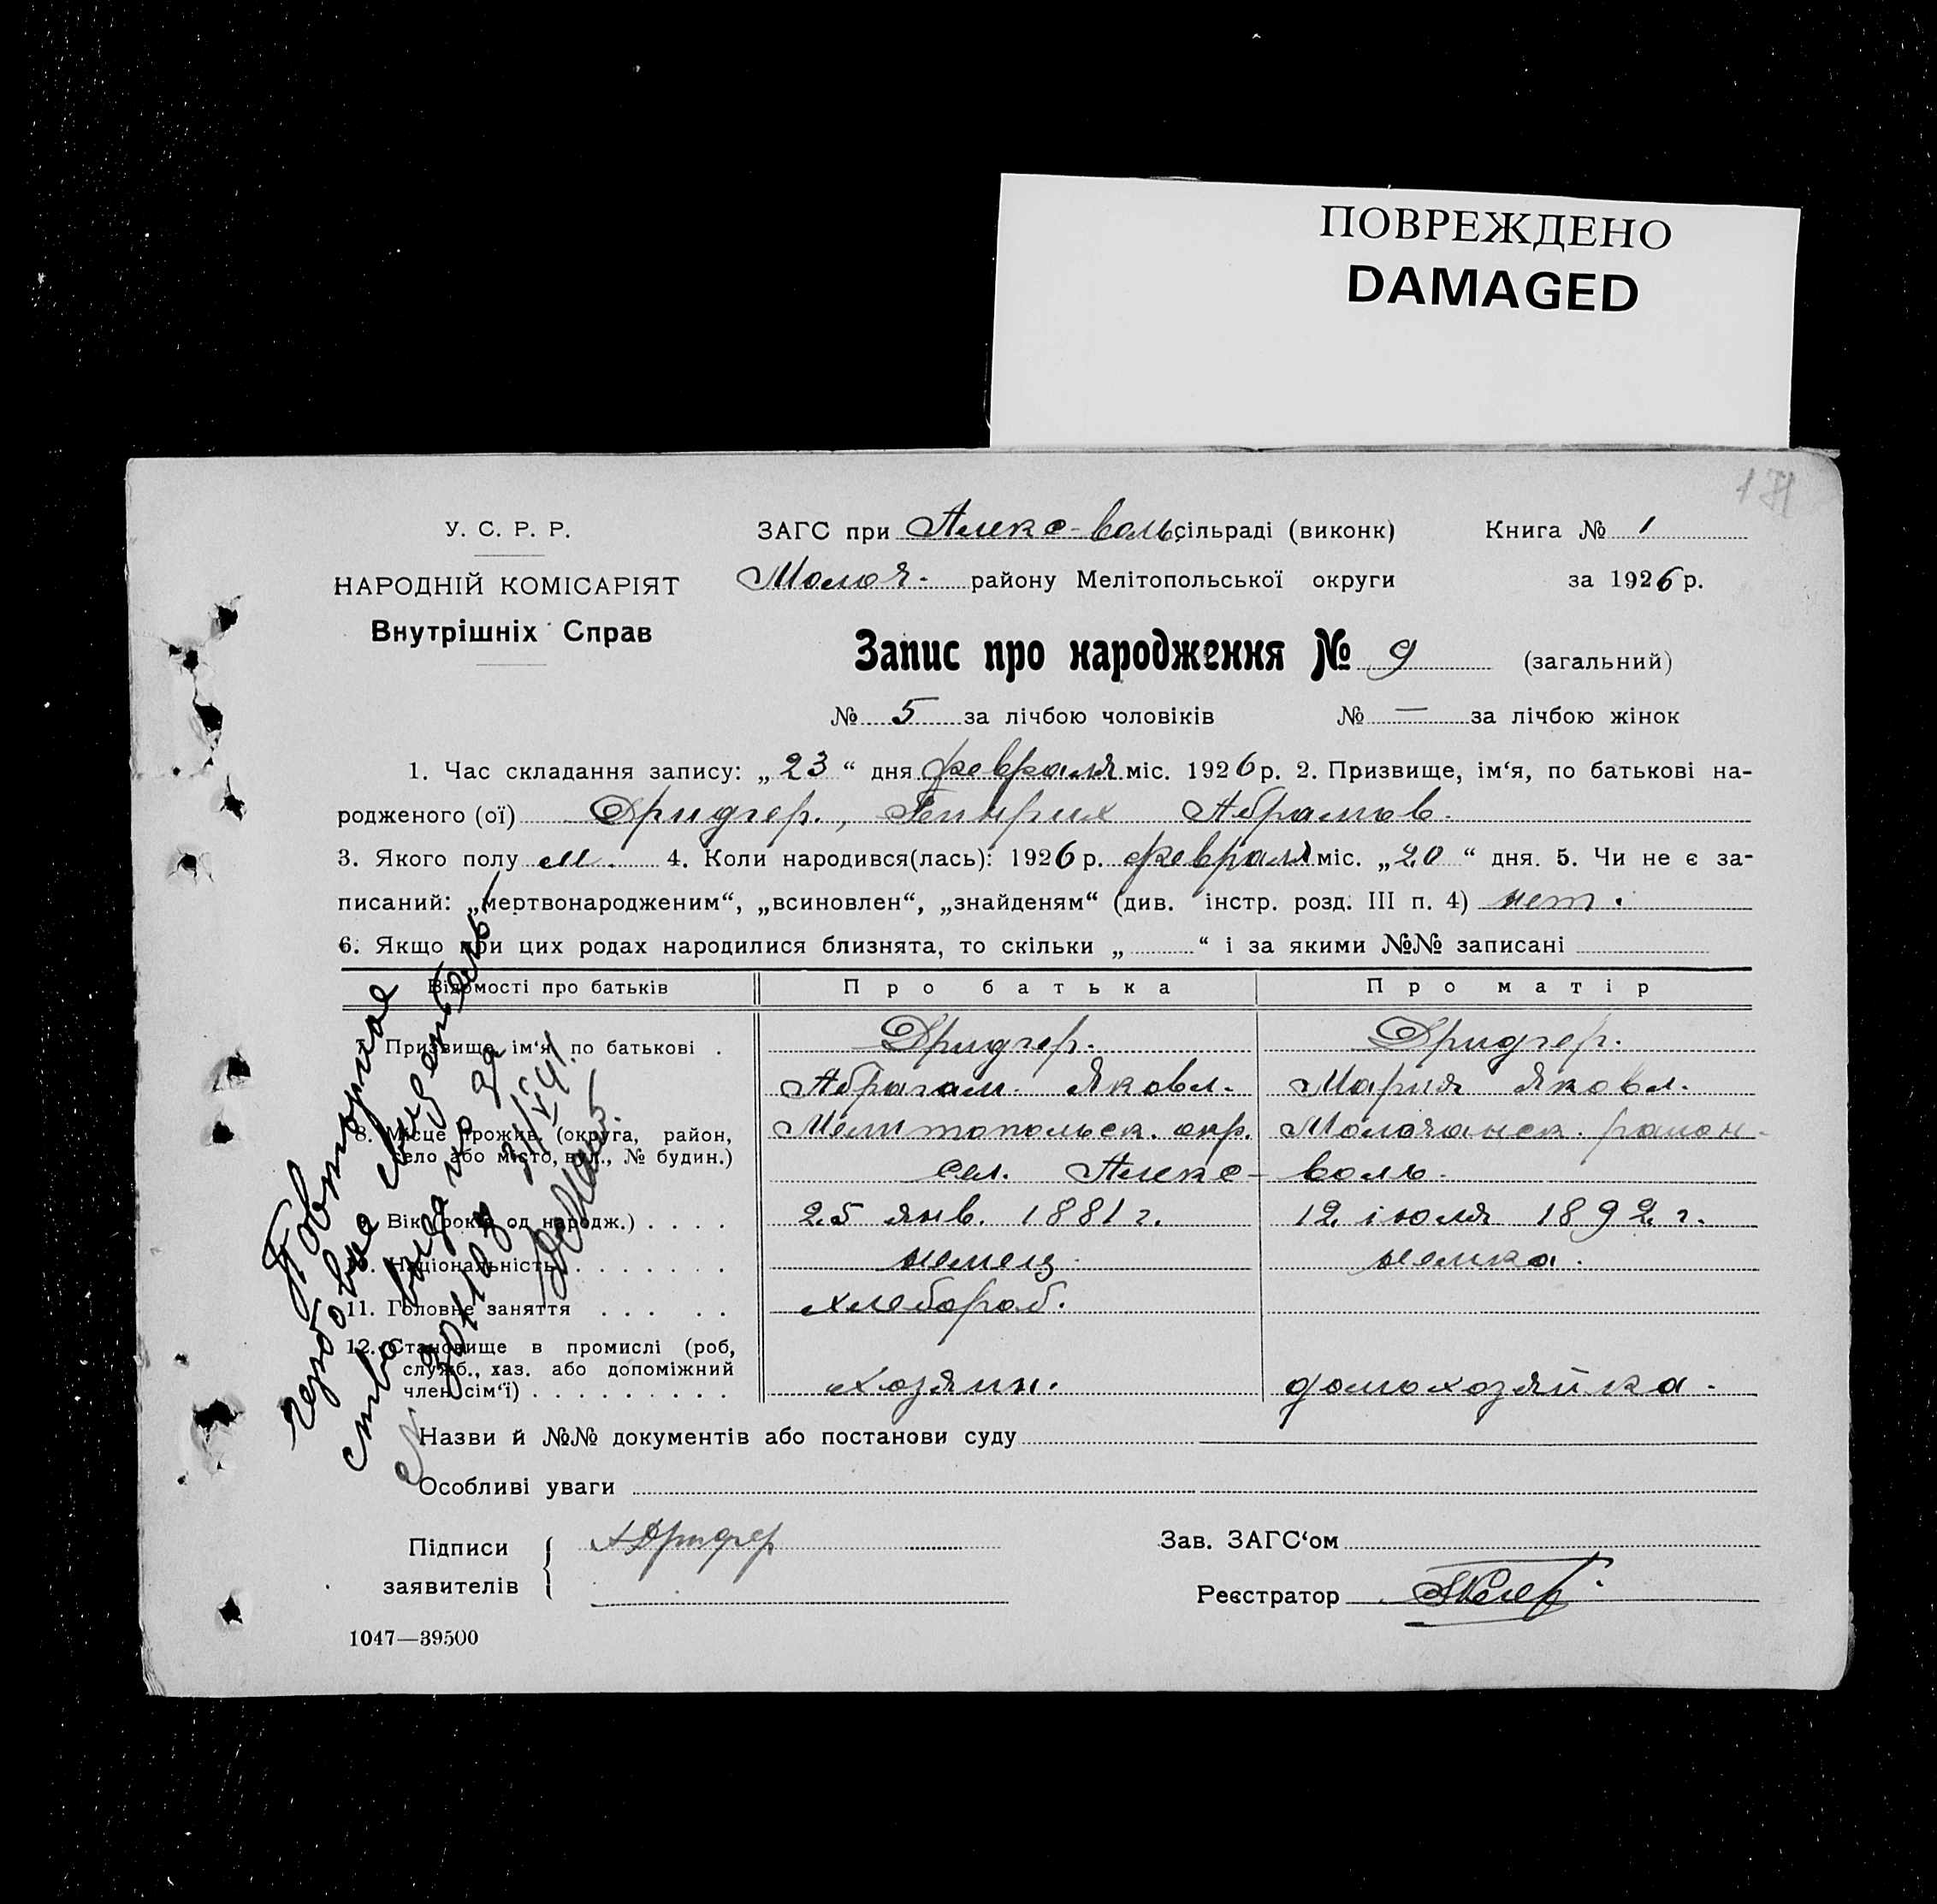 ПОВРЕЖДЕНО
DAMAGED
У. С. Р. Р.
НАРОДНІЙ КОМІСАРІЯТ
Внутрішніх Справ
ЗАГС при Алекс-воль сільраді (виконк)
Молоч. району Мелітопольської округи
Книга № 1
за 1926 р.
Запис про народження № 9 (загальний)
№ 5 за лічбою чоловіків № — за лічбою жінок
1. Час складання запису: „23“ дня февраля міс. 1926 р. 2. Призвище, ім‘я, по батькові на-
родженого (ої) Дридгер., Генрих Абрамов.
3. Якого полу м. 4. Коли народився(лась): 1926 р. февраля міс. „20“ дня. 5. Чи не є за-
писаний: „мертвонародженим“, „всиновлен“, „знайденям“ (див. інстр. розд. III п. 4) нет.
6. Якщо при цих родах народилися близнята, то скільки „ “ і за якими №№ записані
Відомості про батьків Про батька Про матір
Призвище ім‘я по батькові . Дридгер. Дридгер.
Абрагам. Яковл. Мария Яковл.
8. Місце прожив. (округа, район, Мелитопольск. окр. Молочанск. район-
село або місто, вул., № будин.) сел. Алекс- воль.
Вік (років од народж.) . . . . 25 янв. 1881 г. 12 июля 1892 г.
Національність . . . . . . . немец. немка.
11. Головне заняття . . . . . хлебороб.
12. Становище в промислі (роб,
служб., хаз. або допоміжний
член сім‘ї) . . . . . . . . . хозяин. домохозяйка.
Назви й №№ документів або постанови суду
Особливі уваги
Підписи
заявителів
АДридгер
Зав. ЗАГС‘ом
Реєстратор
1047—39500
Повторное
гербовое свидетель
ство выдано за